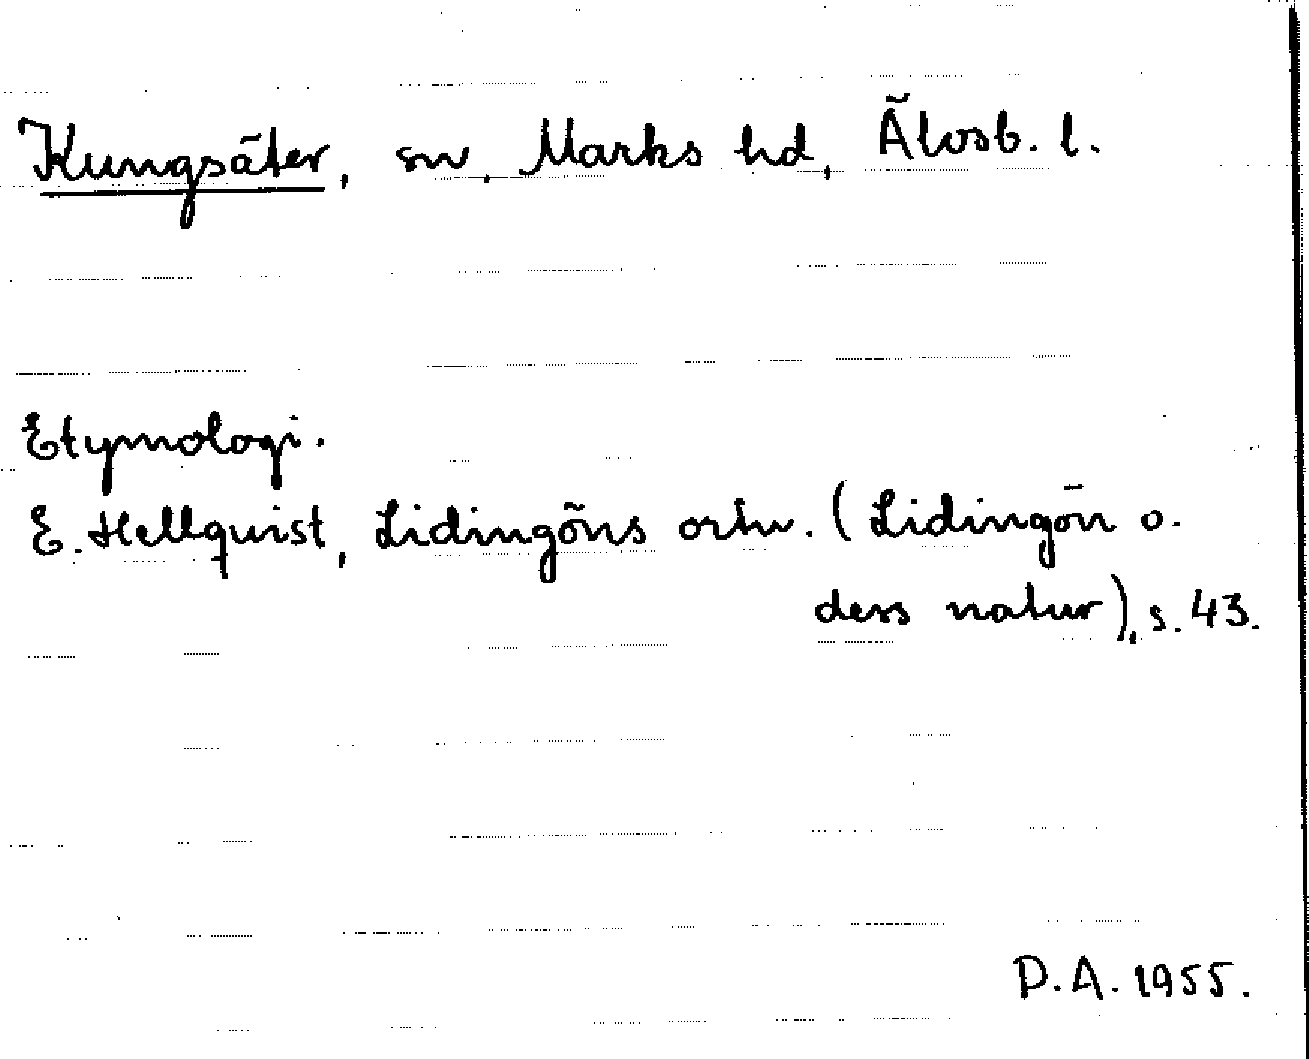 Kungsäter, sn, Marks hd, Älvsb. l.
Etymologi.
E. Hellquist, Lidingöns ortn. (Lidingön o.
dess natur), s. 43.
D.A. 1955.